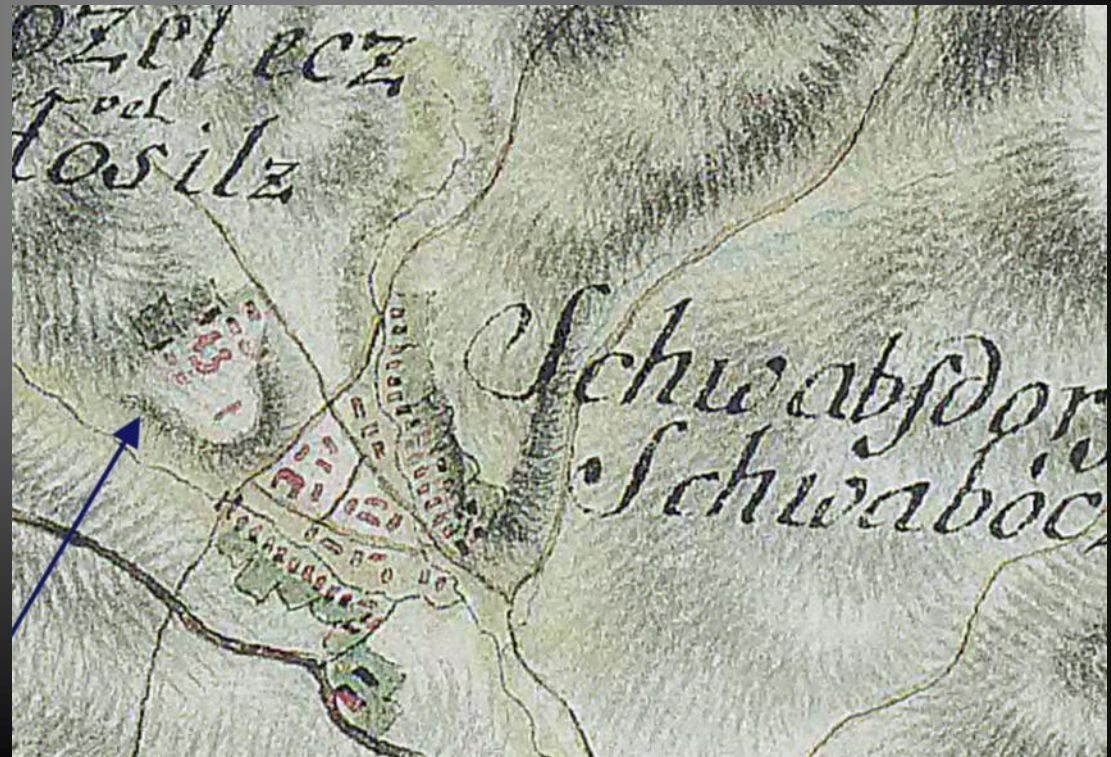 zelecz
vel
osilz
Schwabſdor
Schwaboc